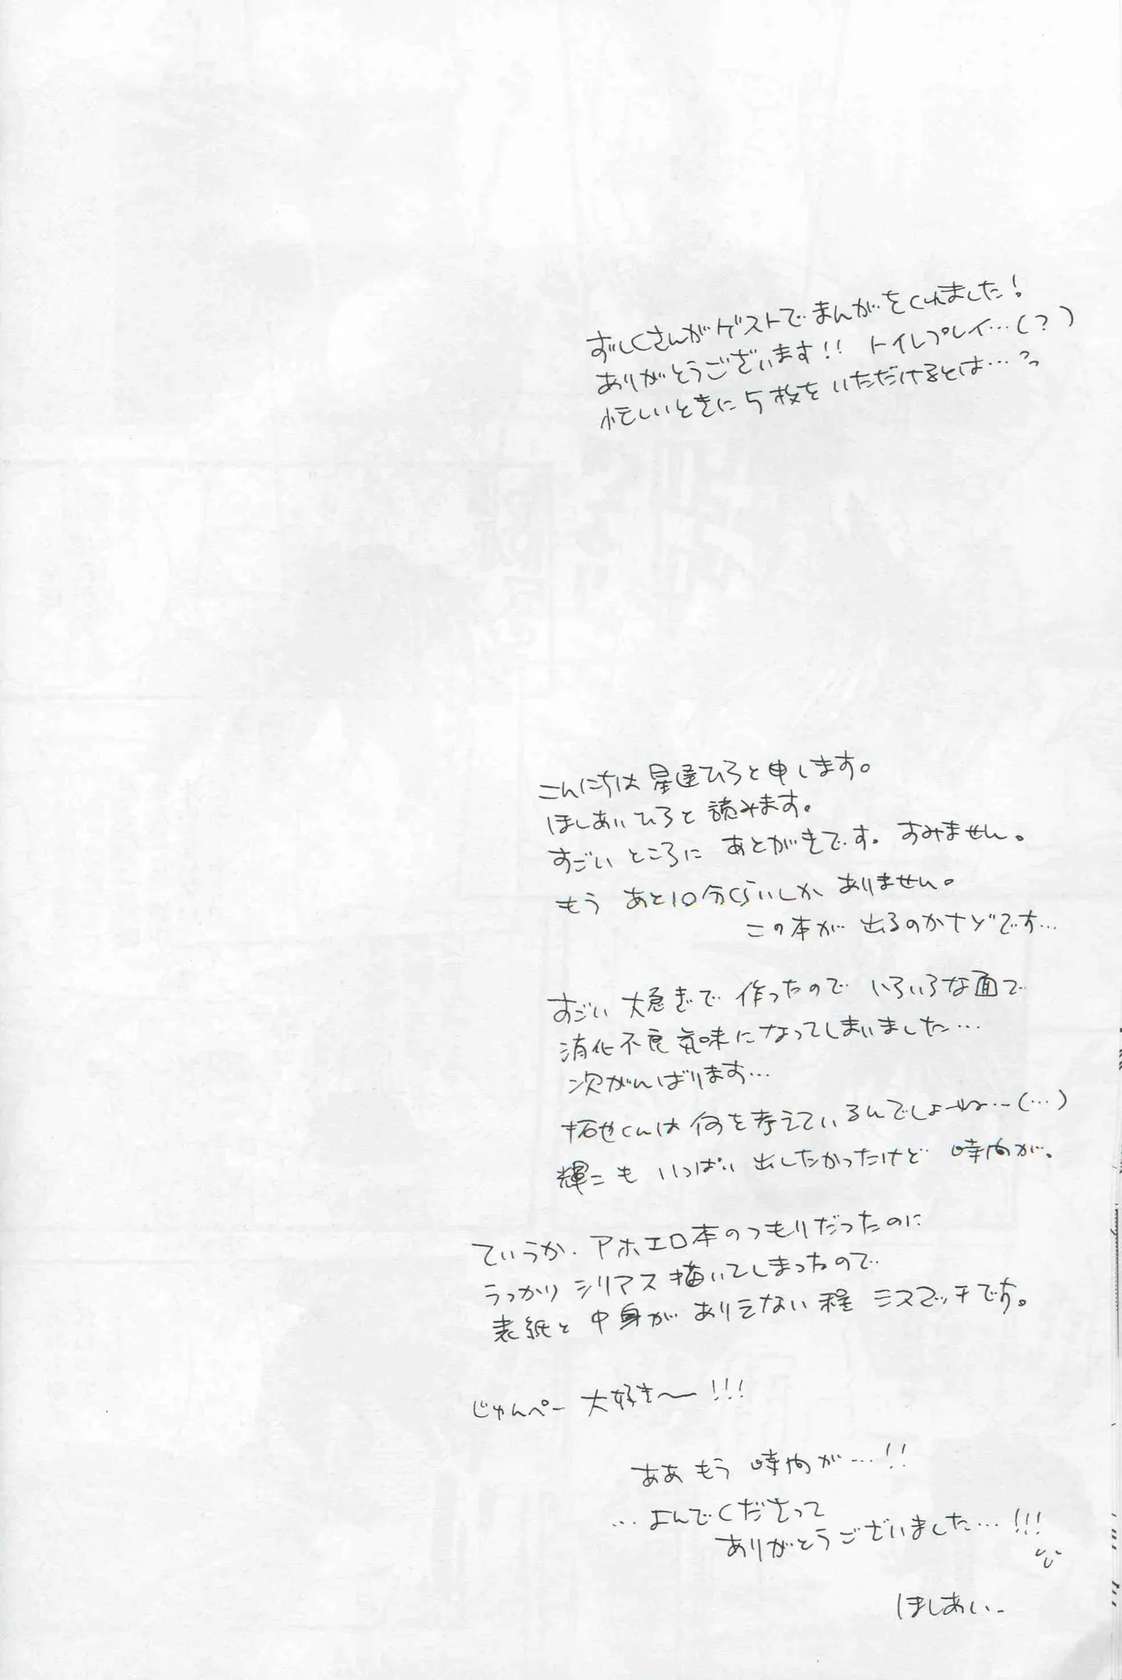 ずしくさんがゲストでまんがをくれました!
ありがとうございます!! トイレプレイ…(?)
忙しいときに5枚をいただけるとは…?
こんにちは 星逢ひろと申します。
ほしあいひろと読みます。
すごいところに あとがきです。すみません。
もう あと10分くらいしか ありません。
この本が 出るのかナゾです…
すごい 大急ぎで 作ったので いろいろな面で
消化不良気味になってしまいました…
次がんばります…
拓也くんは 何を考えているんでしょーね…(…)
輝二も いっぱい 出したかったけど 時間が。
ていうか、アホエロ本のつもりだったのに
うっかり シリアス描いてしまったので
表紙と 中身が ありえない程 ミスマッチです。
じゅんぺー 大好き〜!!!
ああ もう 時間が…!!
…よんでくださって
ありがとうございました…!!!
ほしあい